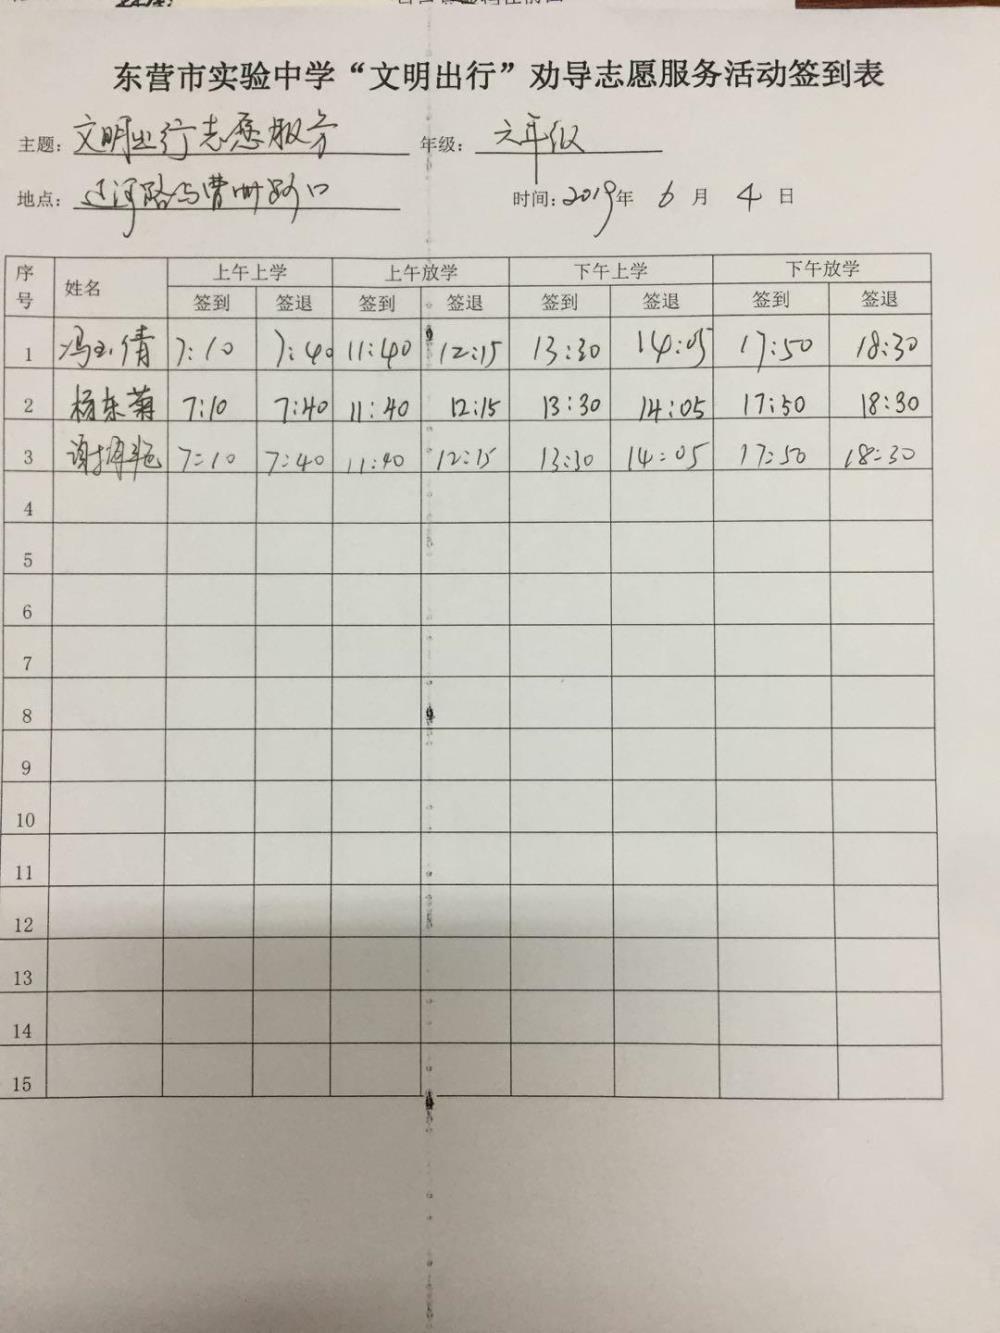 东营市实验中学“文明出行”劝导志愿服务活动签到表
主题：文明出行志愿服务 年级：六年级
地点：辽河路与曹州路口 时间：2019年 6 月 4 日
序号 姓名 上午上学 上午放学 下午上学 下午放学
签到 签退 签到 签退 签到 签退 签到 签退
1 冯玉倩 7:10 7:40 11:40 12:15 13:30 14:05 17:50 18:30
2 杨东菊 7:10 7:40 11:40 12:15 13:30 14:05 17:50 18:30
3 谢 7:10 7:40 11:40 12:15 13:30 14:05 17:50 18:30
4
5
6
7
8
9
10
11
12
13
14
15